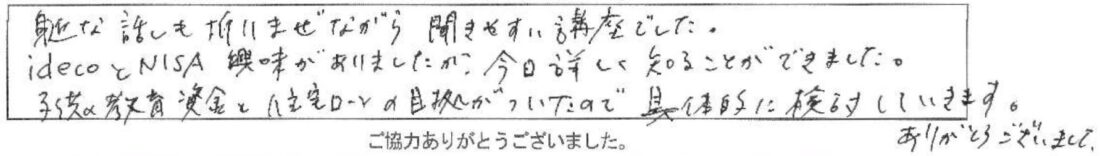 身近な話しも折りまぜながら 聞きやすい講座でした。
idecoとNISA 興味がありましたが、今日詳しく知ることができました。
子供の教育資金と住宅ローンの目処がついたので 具体的に検討していきます。
ありがとうございました。
ご協力ありがとうございました。